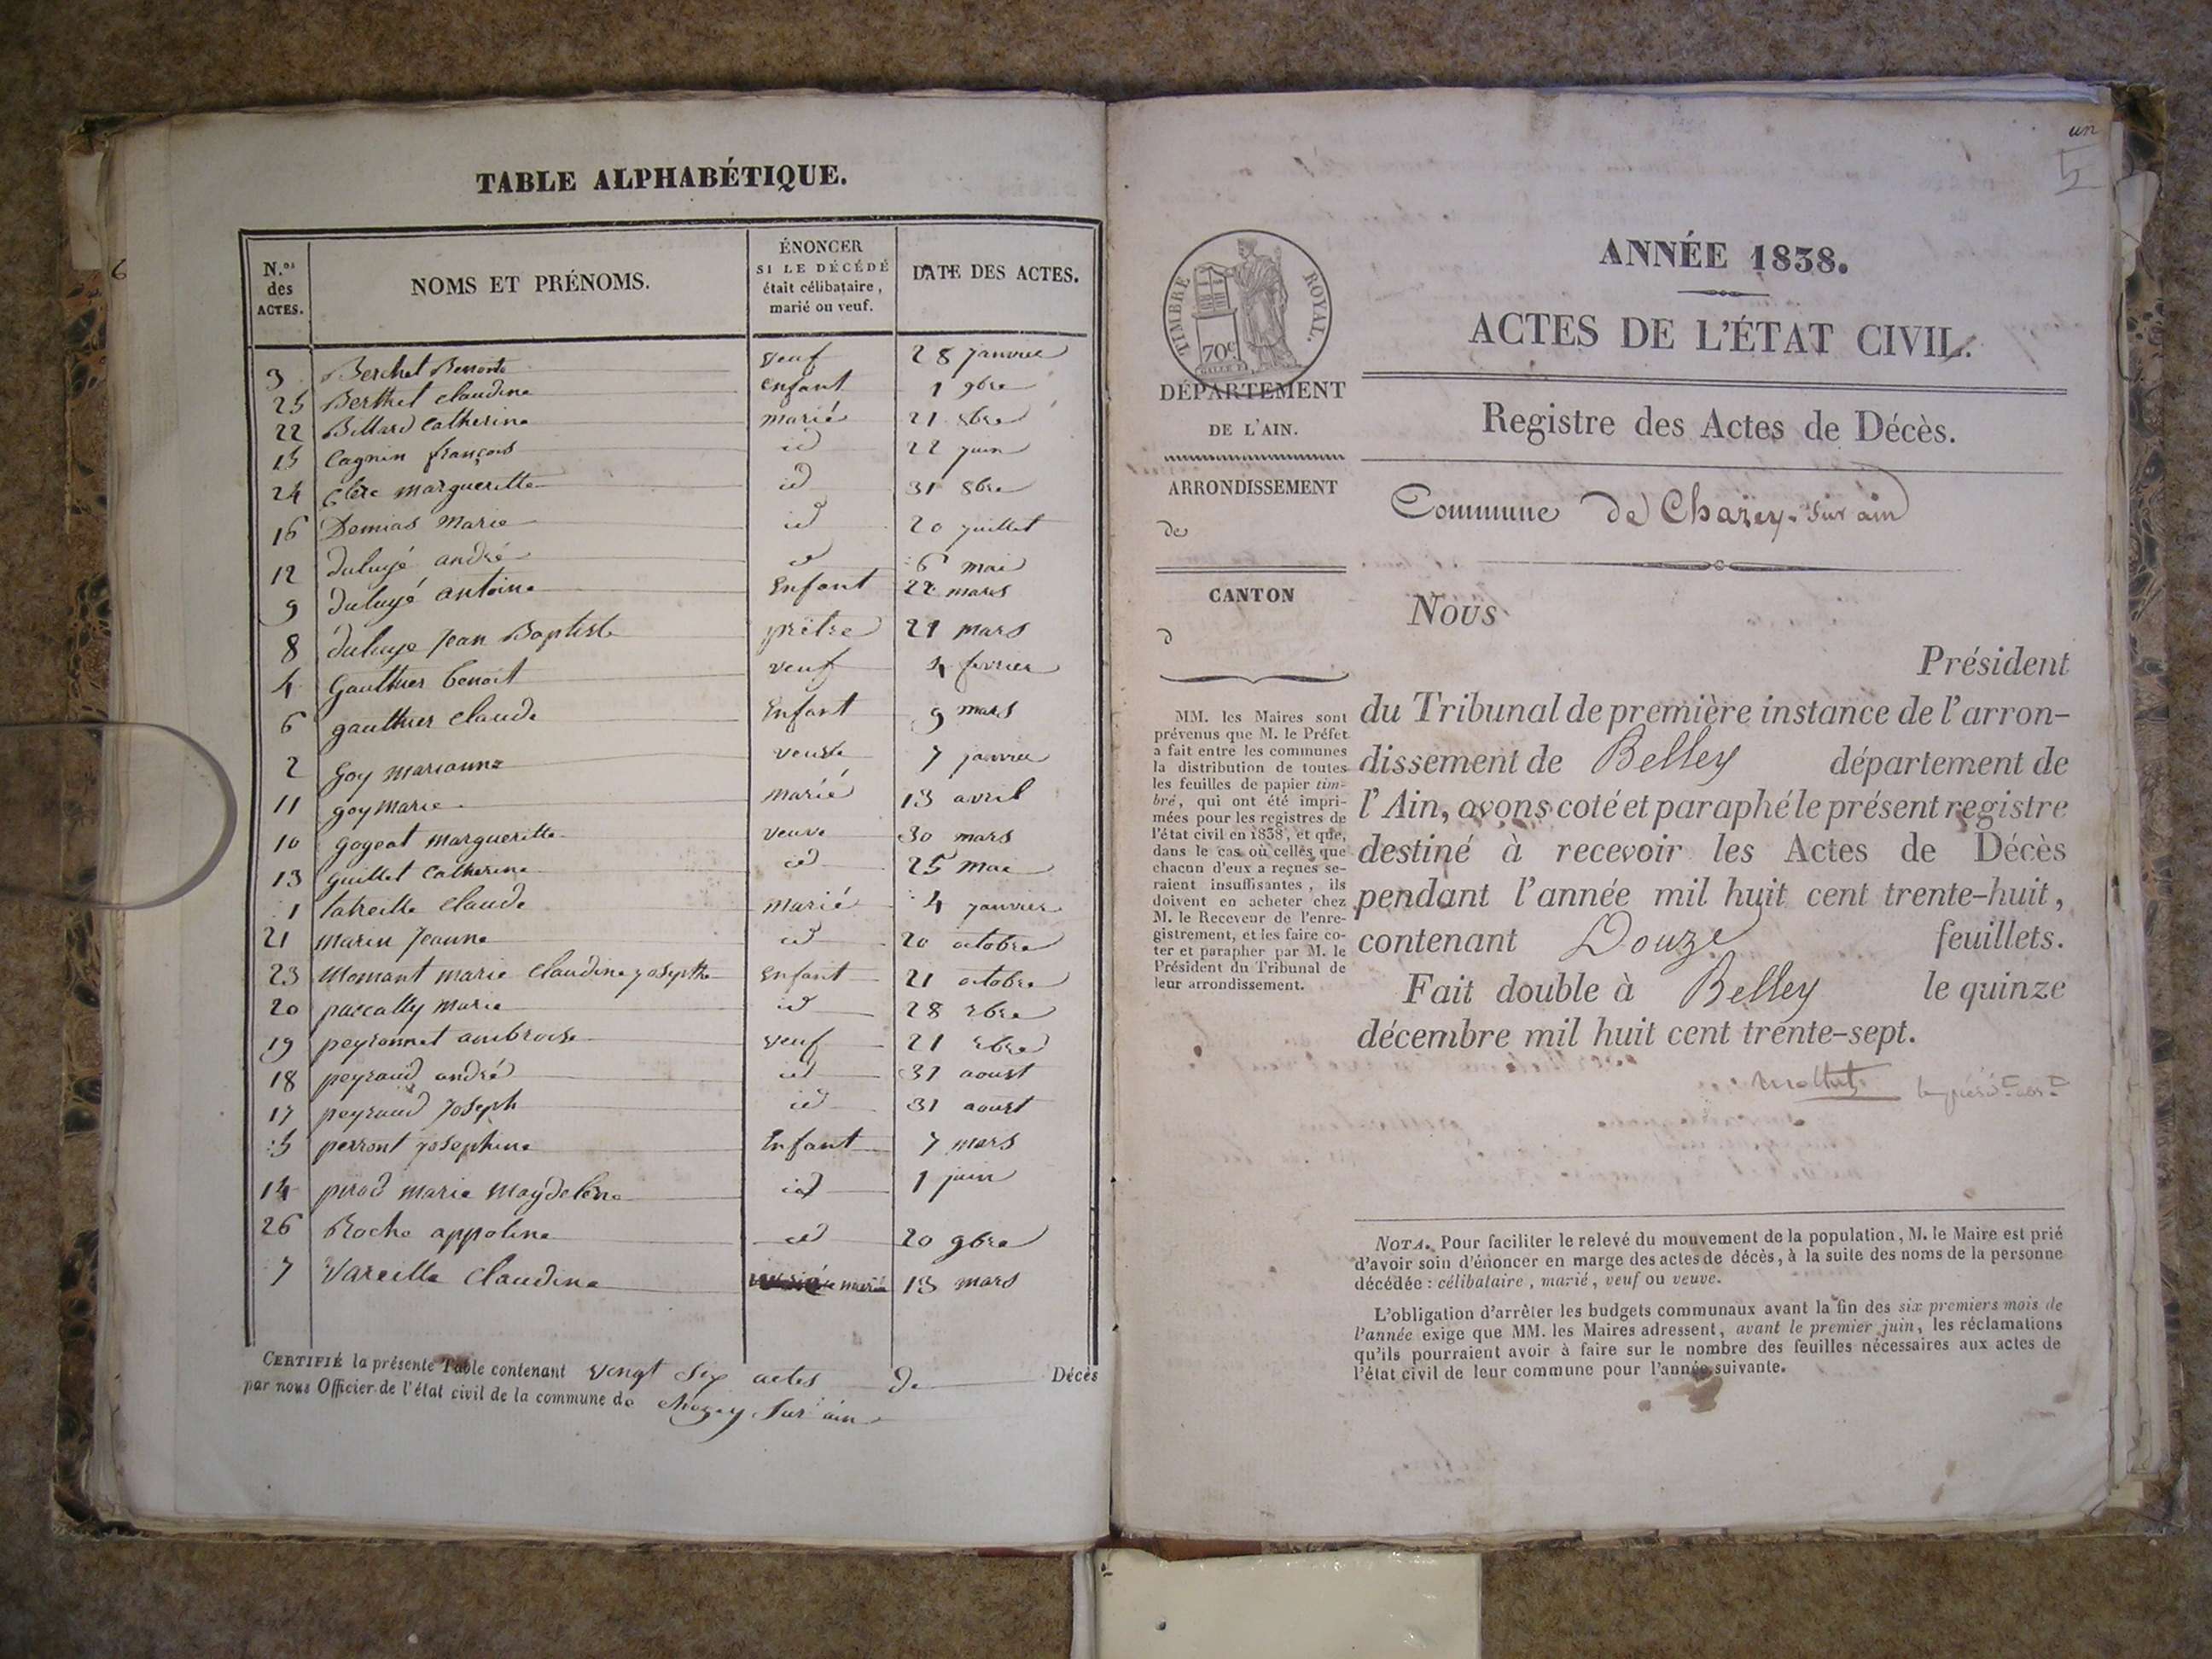 6
TABLE ALPHABÉTIQUE.
N.os des ACTES.
NOMS ET PRÉNOMS.
ÉNONCER
SI LE DÉCÉDÉ
était célibataire,
marié ou veuf.
DATE DES ACTES.
3 Berchet Benoite veuf 28 janvier
25 Berthet claudine enfant 1 9bre
22 Billard Catherine marié 21 8bre
15 Cagnin françois id 22 juin
24 Clere margueritte id 31 8bre
16 Demias Marie id 20 juillet
12 duluyé andré id 6 mai
9 duluyé antoine Enfant 22 mars
8 duluye Jean Baptiste prêtre 21 mars
4 Gauthier benoit veuf 4 fevrier
6 gauthier claude Enfant 9 mars
2 Goy marianne veuve 7 janvier
11 goy marie marié 13 avril
10 goyeat margueritte veuve 30 mars
13 guillet Catherine id 25 mai
1 labeille claude marié 4 janvier
21 marin Jeanne id 20 octobre
23 Momant marie Claudine josepthe Enfant 21 octobre
20 pascally marie id 28
19 peyronnet ambroise veuf 21
18 peyraud andré id 31 aoust
17 peyraud Joseph id 31 aoust
5 perront josephine Enfant 7 mars
14 pirod marie Maydelène id 1 juin
26 Roche appoline id 20 9bre
7 Vareille Claudine marié 13 mars
CERTIFIÉ la présente Table contenant vingt Six actes de Décès
par nous Officier de l'état civil de la commune de chazey Sur ain
un
5
TIMBRE ROYAL.
70c
DÉPARTEMENT
DE L'AIN.
ARRONDISSEMENT
de
CANTON
d
MM. les Maires sont
prévenus que M. le Préfet
a fait entre les communes
la distribution de toutes
les feuilles de papier tim-
bré, qui ont été impri-
mées pour les registres de
l'état civil en 1838, et que,
dans le cas où celles que
chacun d'eux a reçues se-
raient insuffisantes, ils
doivent en acheter chez
M. le Receveur de l'enre-
gistrement, et les faire co-
ter et parapher par M. le
Président du Tribunal de
leur arrondissement.
ANNÉE 1838.
ACTES DE L'ÉTAT CIVIL.
Registre des Actes de Décès.
Commune de Chazey-Sur ain
Nous
Président
du Tribunal de première instance de l'arron-
dissement de Belley département de
l'Ain, avons coté et paraphé le présent registre
destiné à recevoir les Actes de Décès
pendant l'année mil huit cent trente-huit,
contenant Douze feuillets.
Fait double à Belley le quinze
décembre mil huit cent trente-sept.
NOTA. Pour faciliter le relevé du mouvement de la population, M. le Maire est prié
d'avoir soin d'énoncer en marge des actes de décès, à la suite des noms de la personne
décédée : célibataire, marié, veuf ou veuve.
L'obligation d'arrêter les budgets communaux avant la fin des six premiers mois de
l'année exige que MM. les Maires adressent, avant le premier juin, les réclamations
qu'ils pourraient avoir à faire sur le nombre des feuilles nécessaires aux actes de
l'état civil de leur commune pour l'année suivante.